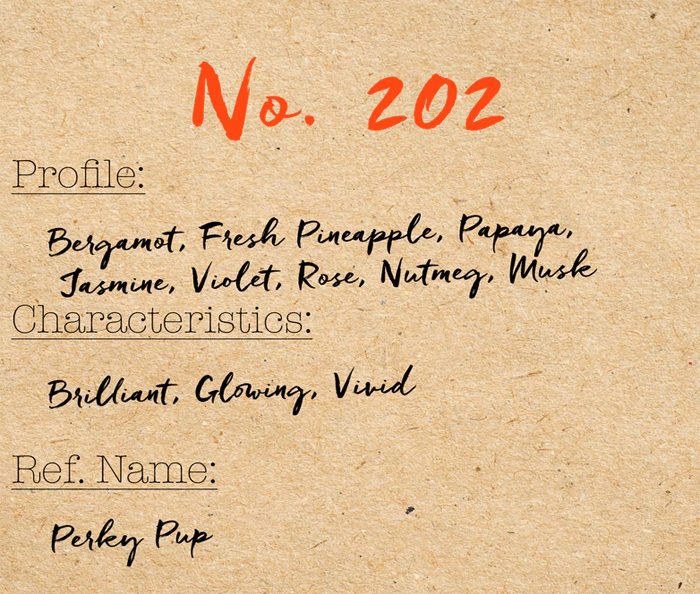 No. 202
Profile:
Bergamot, Fresh Pineapple, Papaya,
Jasmine, Violet, Rose, Nutmeg, Musk
Characteristics:
Brilliant, Glowing, Vivid
Ref. Name:
Perky Pup